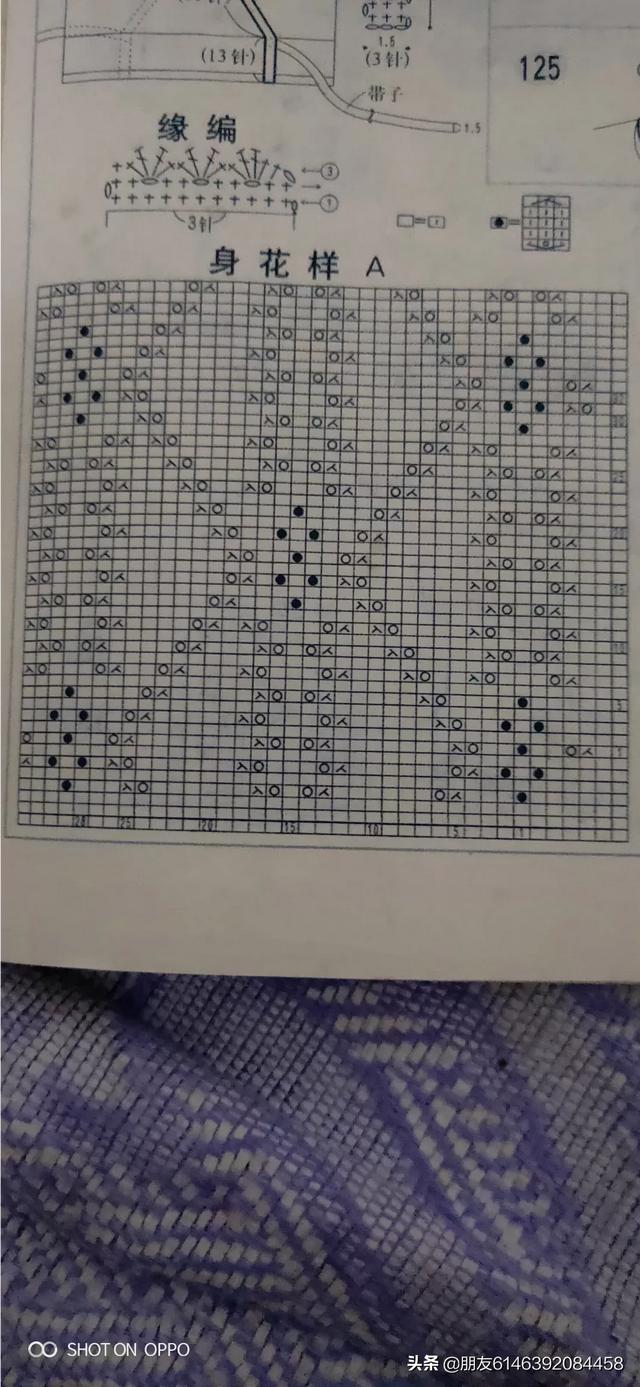 (13针)
1.5
(3针)
125
带子
1.5
缘编
③
①
3针
身花样 A
30
25
20
15
10
5
1
28 25 20 15 10 5 1
SHOT ON OPPO
头条 @朋友6146392084458